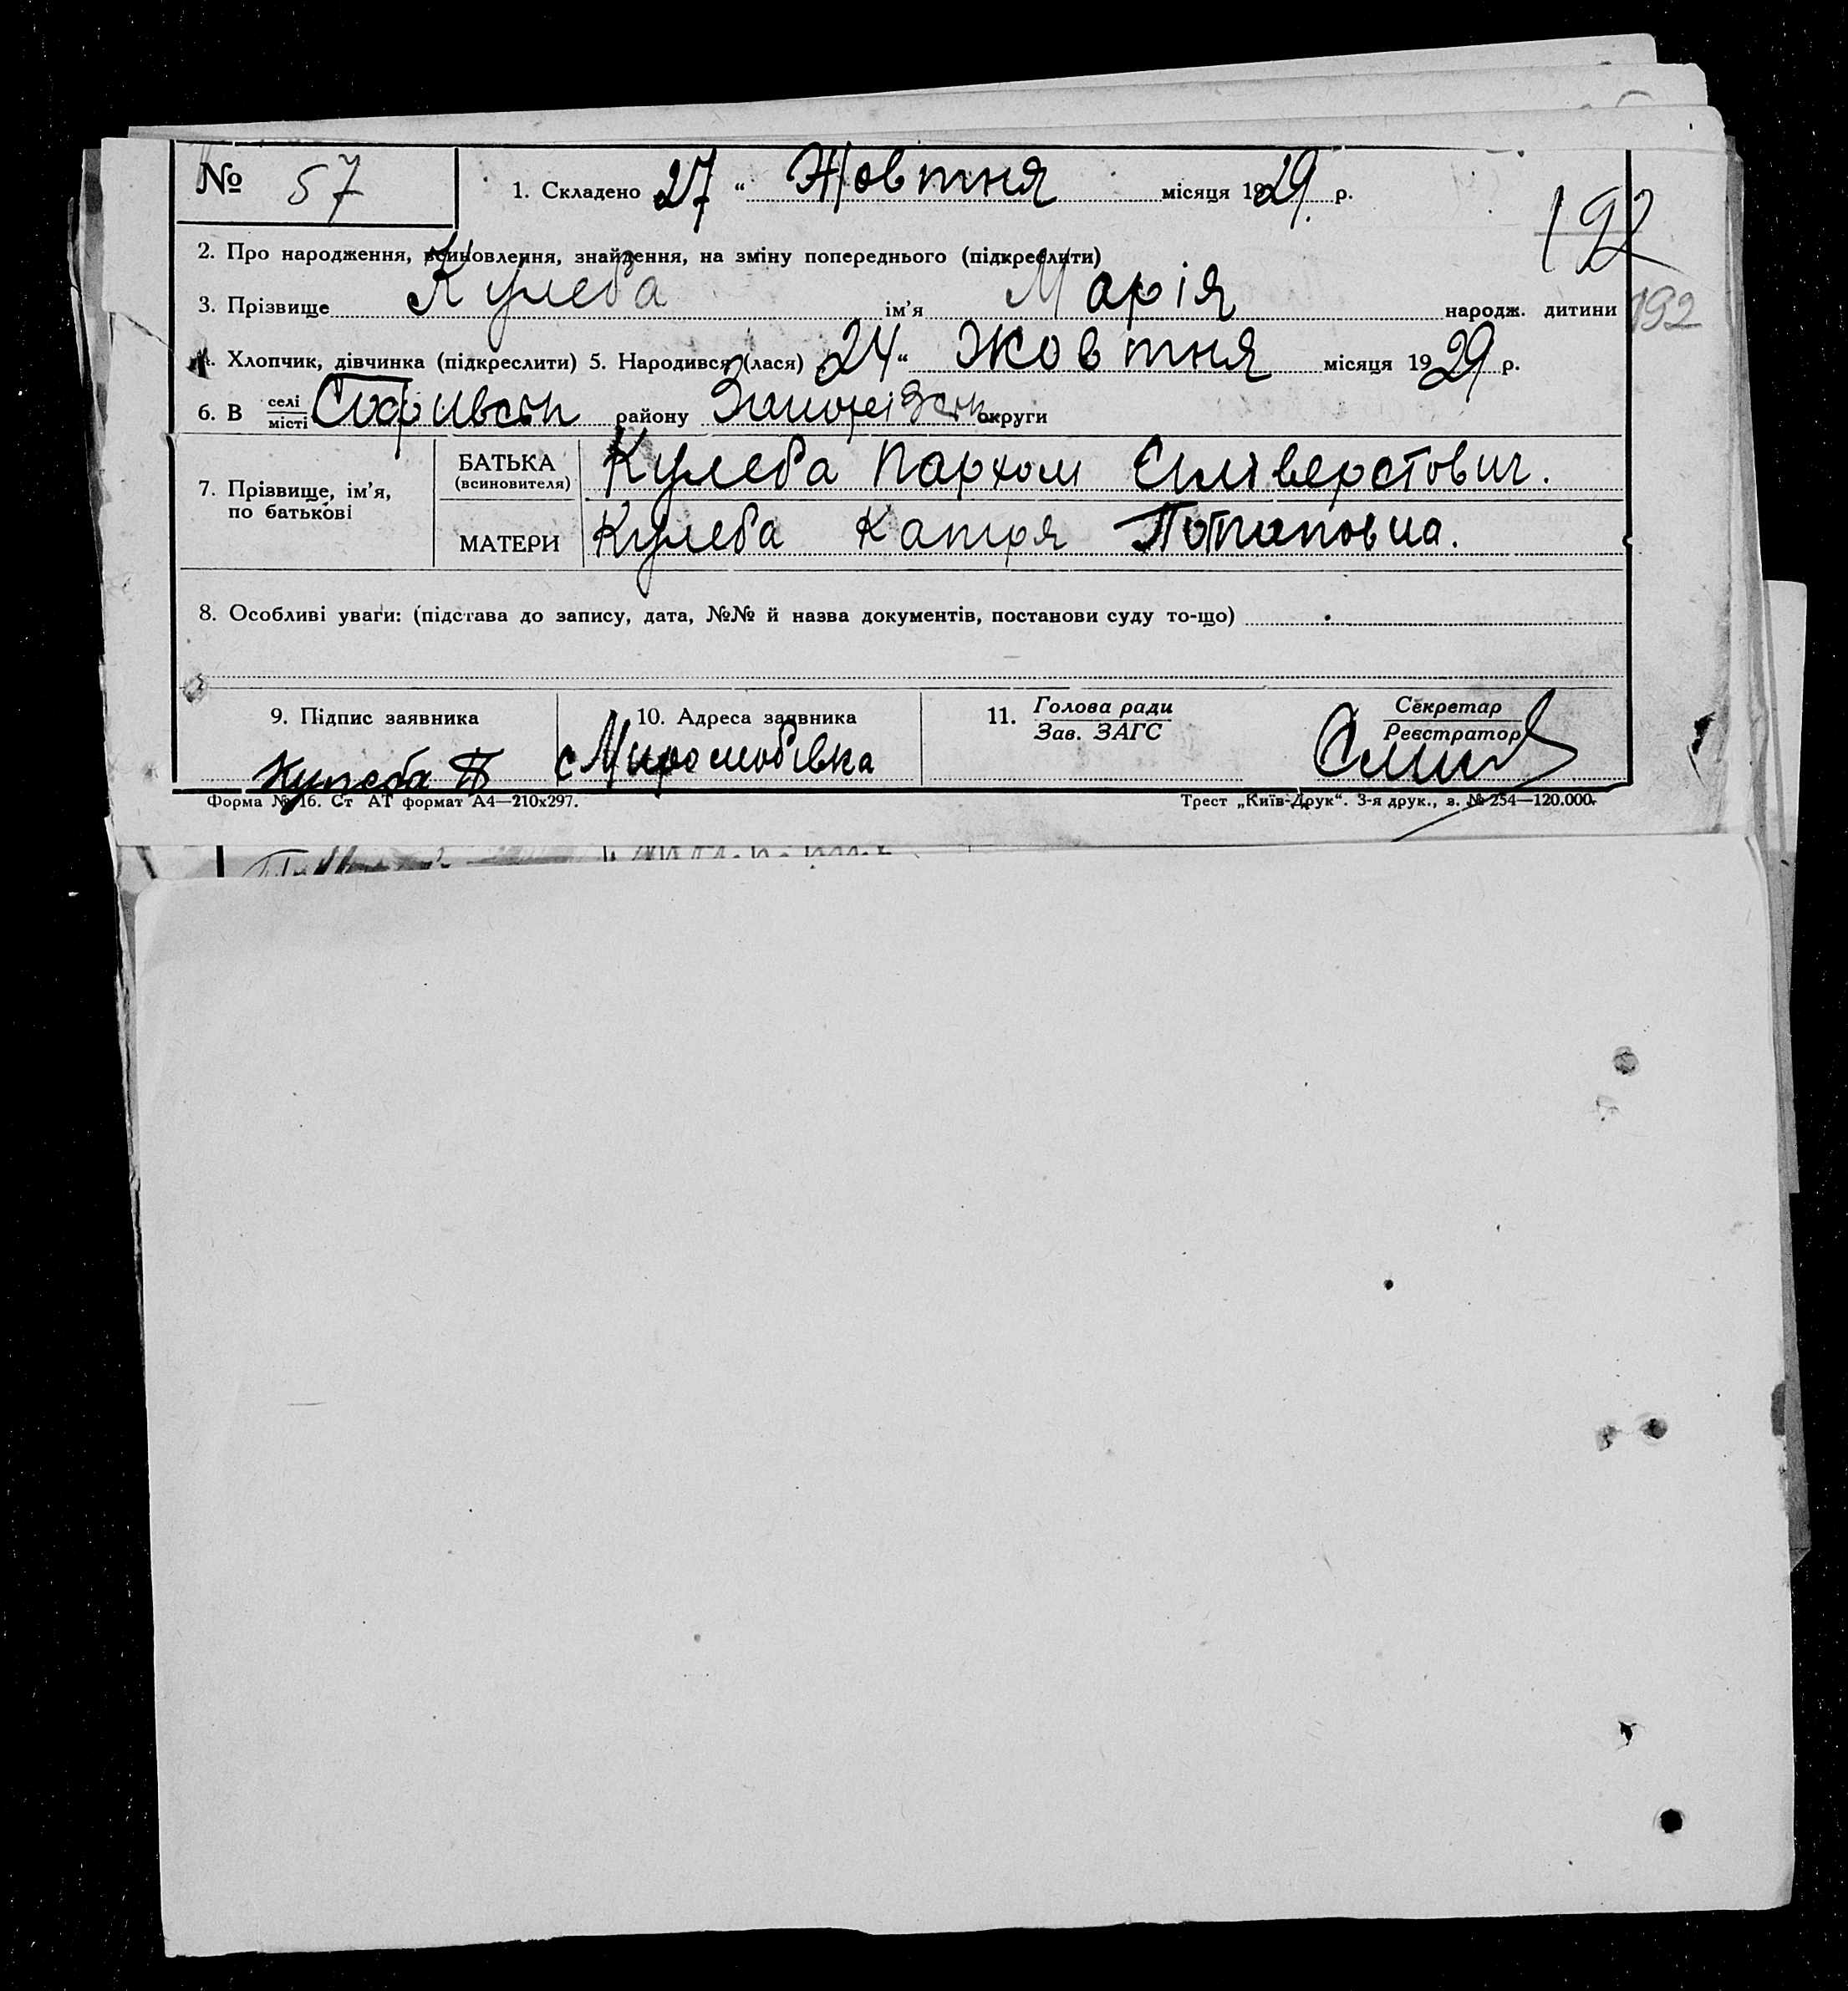 № 57
1. Складено 27 “ Жовтня місяця 1929 р.
192
2. Про народження, всиновлення, знайдення, на зміну попереднього (підкреслити)
3. Прізвище Кулеба ім’я Марія народж. дитини
192
4. Хлопчик, дівчинка (підкреслити) 5. Народився (лася) 24 “ Жовтня місяця 1929 р.
6. В селі місті Софиивськ району округи
7. Прізвище, ім’я, по батькові
БАТЬКА (всиновителя) Кулеба Пархом Єлівертович.
МАТЕРИ Кулеба Катря Потаповна.
8. Особливі уваги: (підстава до запису, дата, №№ й назва документів, постанови суду то-що)
9. Підпис заявника
10. Адреса заявника
11. Голова ради Зав. ЗАГС
Секретар Реєстратор
Кулеба П
с Миролюбівка
Форма № 16. Ст АТ формат А4—210х297.
Трест „Київ-Друк“. 3-я друк., з. № 254—120.000.